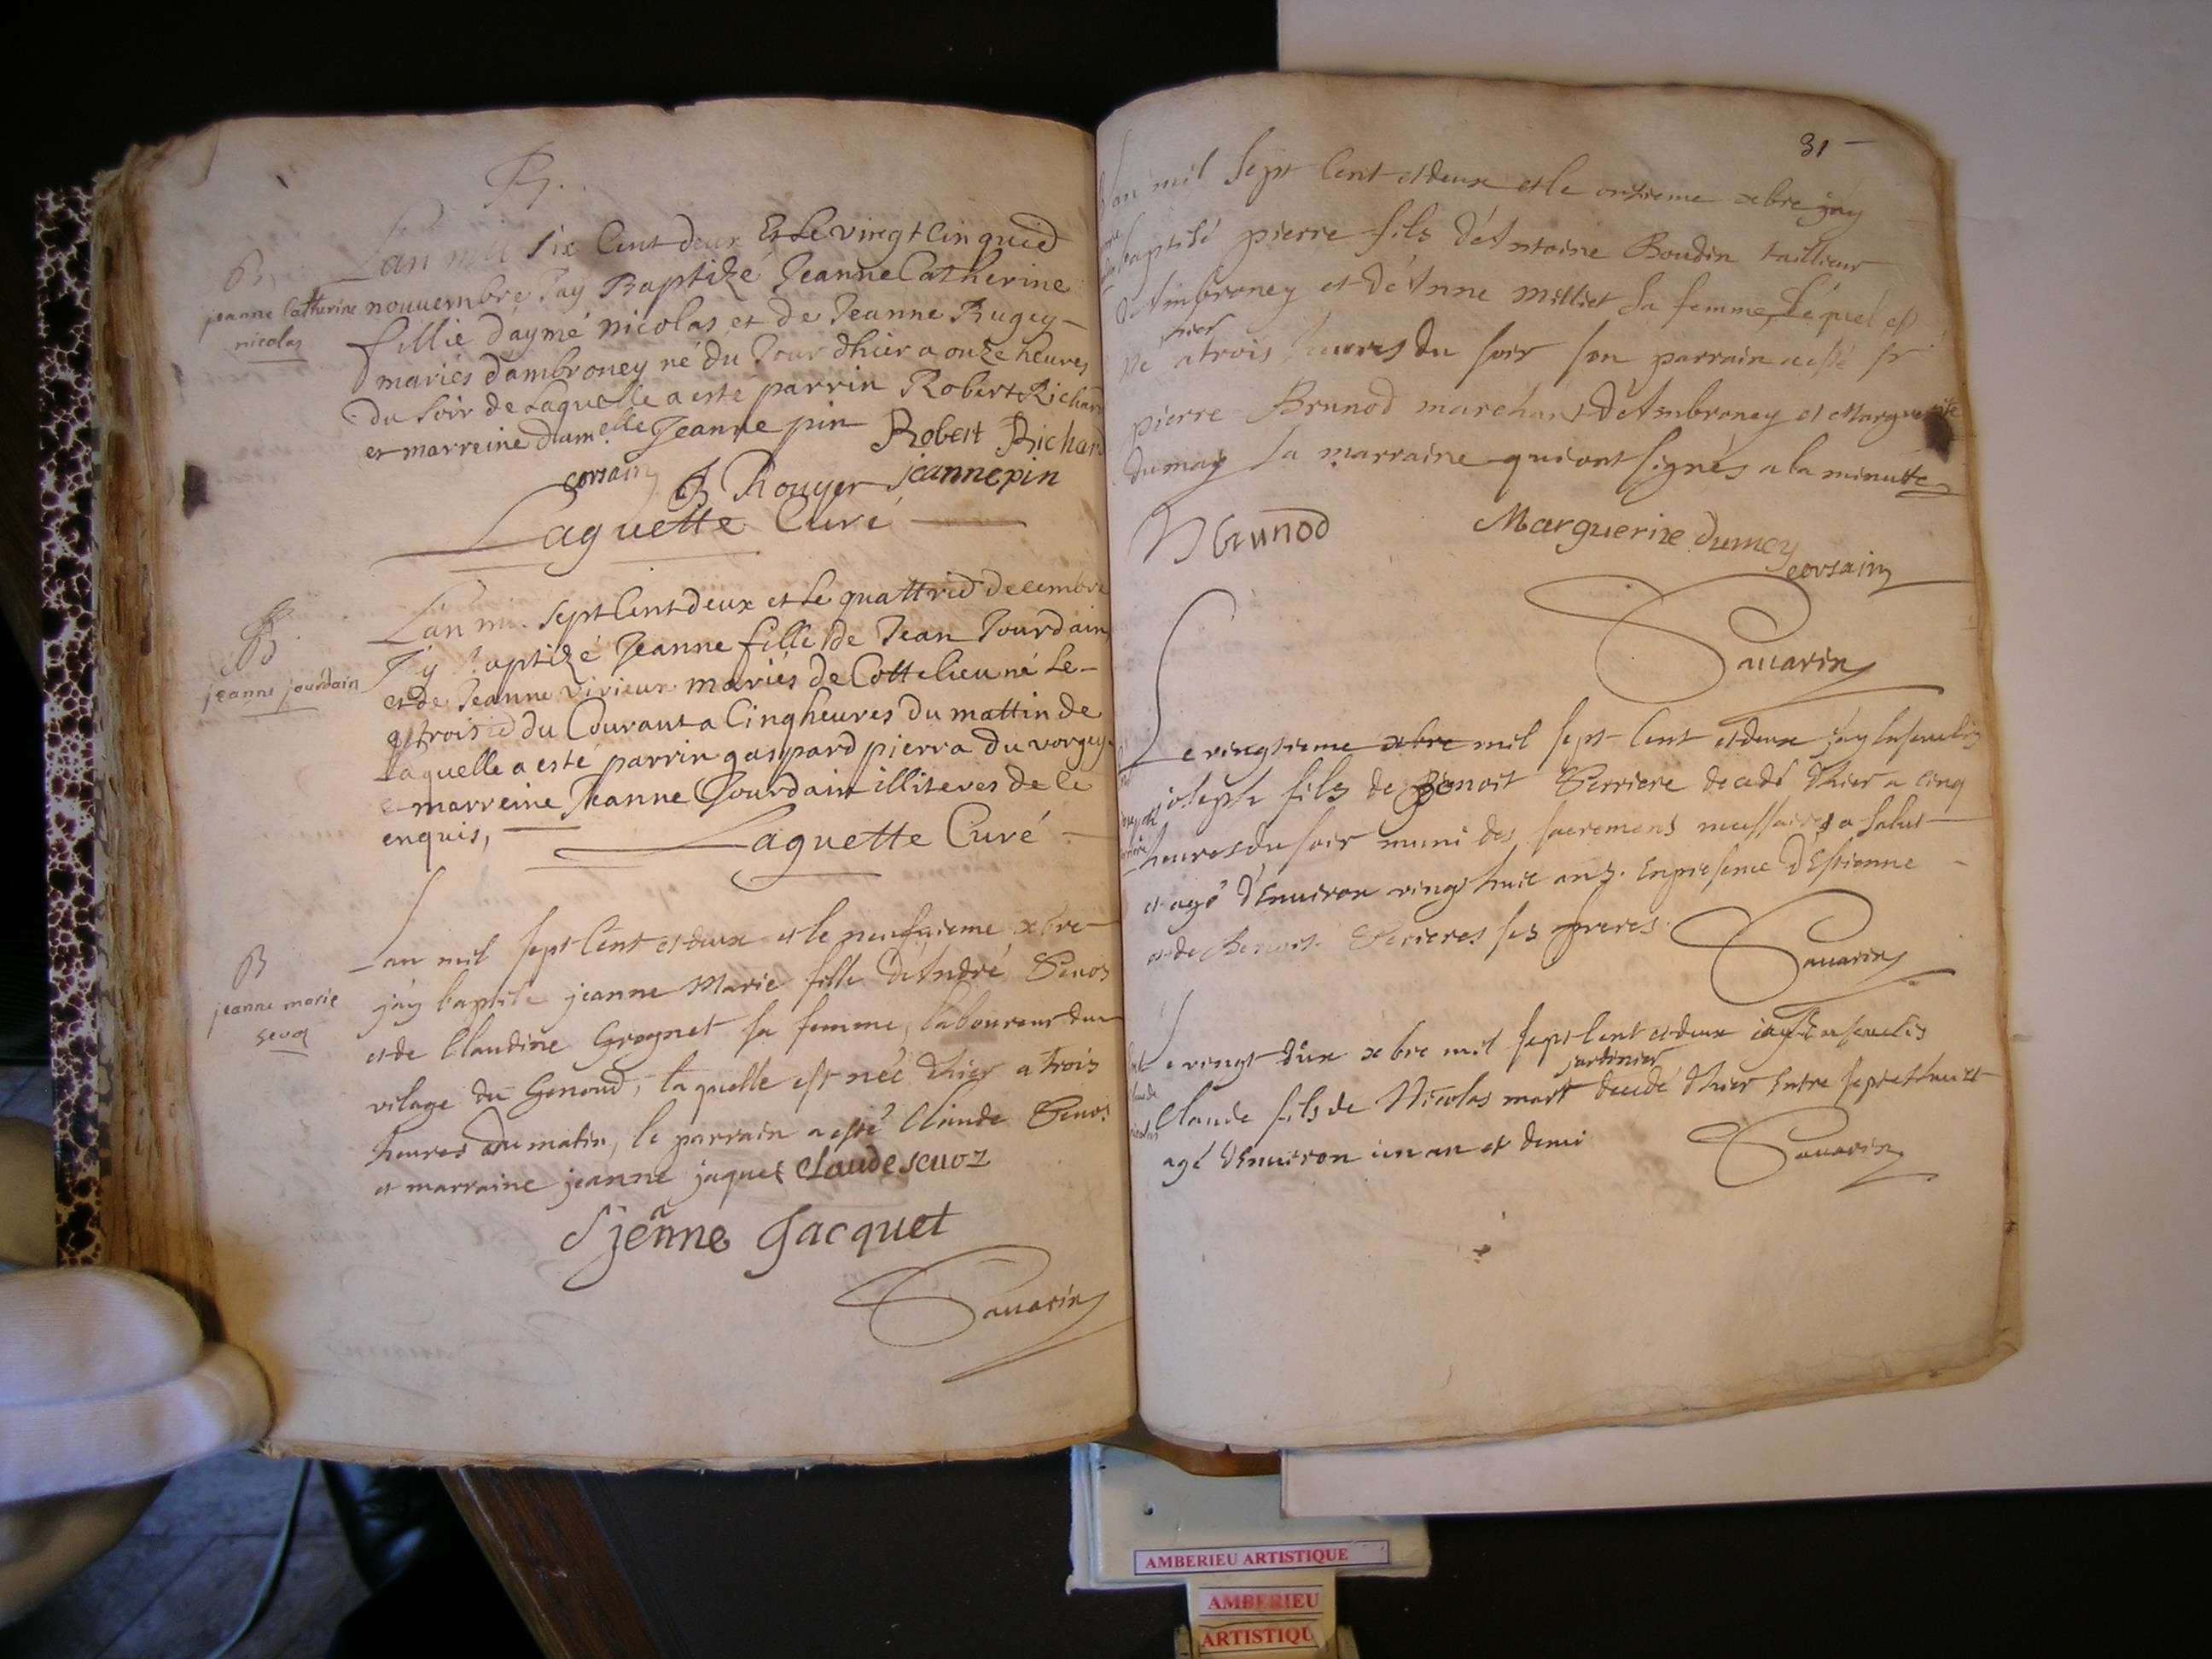 B.
Lan mil six Cent deux Et Le vingt Cinquie
B
jeanne Catherine
nicolas
nouuembre Jay Baptizé Jeanne Catherine
fillie d'aymé nicolas et de Jeanne Rugey
mariés dambroney né du Jour dhier a onze heures
du soir de Laquelle a esté parrin Robert Richard
et marreine damelle Jeanne pin Robert Richard
corsain J Rouyer jeanne pin
Laguette Curé
Lan mil sept Cent deux et Le quattrie decembre
B
jeanne jourdain
Jay baptizé Jeanne fille de Jean Jourdain
et de Jeanne Virieux mariés de Cottelieu né Le
troisie du Courant a Cinq heures du mattin de
Laquelle a esté parrin gaspard pierra du vorgey
marreine Jeanne Jourdain illiteres de ce
enquis,
Laguette Curé
Lan mil sept Cent et deux et le neufuieme xbre
B
jeanne marie
sevoz
jay baptisé jeanne Marie fille d'André Sevoz
et de Claudine Grognet sa femme, laboureur du
vilage du Genoud, laquelle est née d'hier a trois
heures du matin, le parrain a esté Claude Sevoz
et marraine jeanne jaquet Claude sevoz
jeanne Jacquet
Sauarin
31
Lan mil sept Cent et deux et le onzieme xbre jay
baptisé pierre fils d'Antoine Boudin taillieur
d'Ambroney et d'Anne Milliet sa femme, Lequel est
né hier a trois heures du soir son parrain a esté sr
pierre Brunod marchant d'Ambroney et Marguerite
dumay sa marraine qui ont signés a la minutte
Brunod Marguerite dumey
corsain
Sauarin
Le vingtieme xbre mil sept Cent et deux j'ay Enseuelis
joseph fils de Benoit Perriere decedé d'hier a cinq
heures du soir muni des sacremens necessaires a salut
et agé d'Enuiron vingt huit ans. En presence d'Estienne
et de Benoit Perieres ses freres.
Sauarin
Le vingt d'ux xbre mil sept Cent et deux jay Enseuelis
Claude fils de Nicolas mart jardinier decedé d'hier Entre sept et huict
agé d'Enuiron un an et demi
Sauarin
AMBERIEU ARTISTIQUE
AMBERIEU
ARTISTIQU